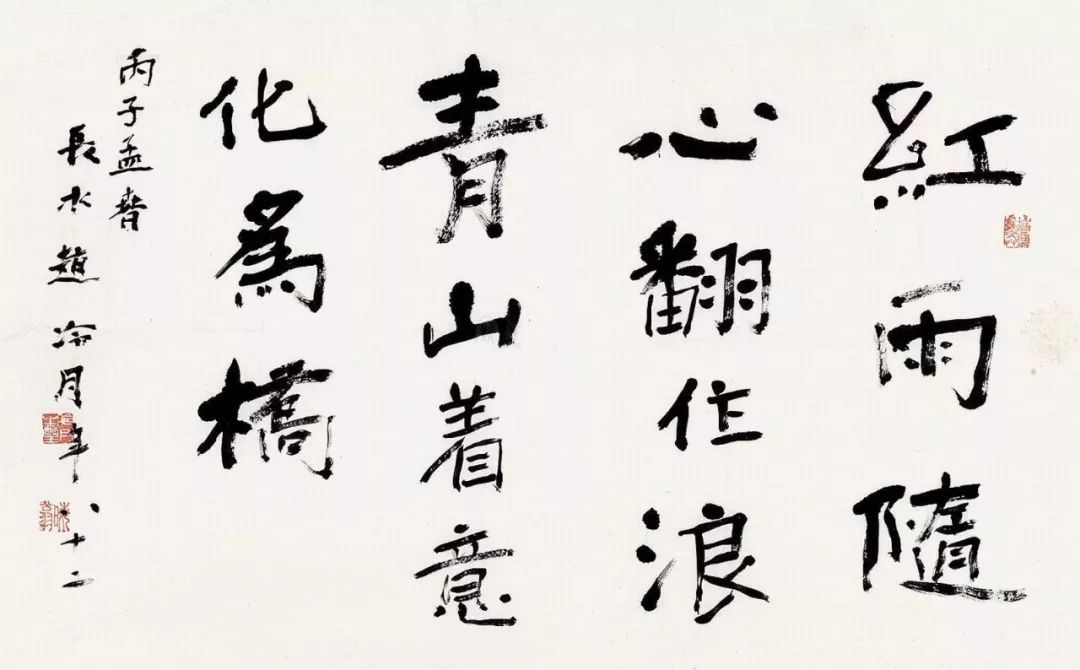 紅雨隨
心翻作浪
青山着意
化爲橋
丙子孟春
長水趙冷月年八十二